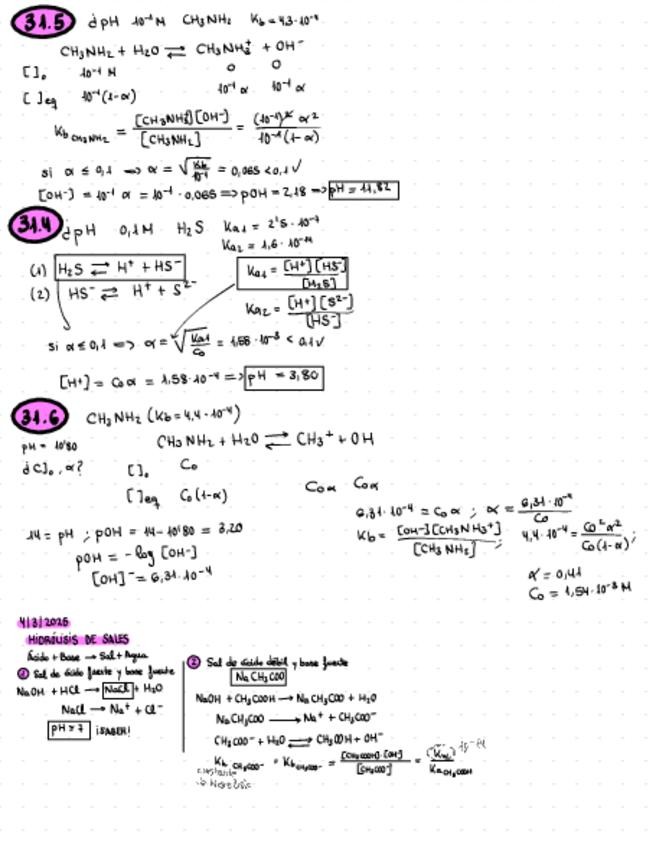 31.5 ¿pH 10⁻¹ M CH3NH2 Kb = 4,3·10⁻⁴
CH3NH2 + H2O ⇌ CH3NH3⁺ + OH⁻
[ ]₀ 10⁻¹ M 0 0
[ ]eq 10⁻¹(1-α) 10⁻¹ α 10⁻¹ α
Kb CH3NH2 = [CH3NH3⁺][OH⁻] / [CH3NH2] = (10⁻¹)² α² / 10⁻¹(1-α)
si α ≤ 0,1 ⇒ α = √(Kb/10⁻¹) = 0,065 < 0,1 ✓
[OH⁻] = 10⁻¹ α = 10⁻¹ · 0,065 ⇒ pOH = 2,18 ⇒ pH = 11,82
31.4 ¿pH 0,1M H2S Ka1 = 2'5·10⁻⁷
Ka2 = 1,6·10⁻¹⁴
(1) H2S ⇌ H⁺ + HS⁻ Ka1 = [H⁺][HS⁻] / [H2S]
(2) HS⁻ ⇌ H⁺ + S²⁻ Ka2 = [H⁺][S²⁻] / [HS⁻]
si α ≤ 0,1 ⇒ α = √(Ka1/C0) = 1,58·10⁻³ < 0,1 ✓
[H⁺] = C0α = 1,58·10⁻⁴ ⇒ pH = 3,80
31.6 CH3NH2 (Kb = 4,4·10⁻⁴)
pH = 10'80 CH3NH2 + H2O ⇌ CH3⁺ + OH
¿C]₀, α? [ ]₀ C0
[ ]eq C0(1-α) C0α C0α
14 = pH ; pOH = 14 - 10'80 = 3,20
pOH = -log [OH⁻]
[OH]⁻ = 6,31·10⁻⁴
6,31·10⁻⁴ = C0α ; α = 6,31·10⁻⁴ / C0
Kb = [OH⁻][CH3NH3⁺] / [CH3NH2] ; 4,4·10⁻⁴ = C0²α² / C0(1-α) ;
α = 0,41
C0 = 1,54·10⁻³ M
4/3/2025
HIDRÓLISIS DE SALES
Ácido + Base → Sal + Agua
① Sal de ácido fuerte y base fuerte
NaOH + HCl → NaCl + H2O
NaCl → Na⁺ + Cl⁻
pH = 7 ¡SABER!
② Sal de ácido débil y base fuerte
NaCH3COO
NaOH + CH3COOH → NaCH3COO + H2O
NaCH3COO → Na⁺ + CH3COO⁻
CH3COO⁻ + H2O ⇌ CH3COOH + OH⁻
Kh CH3COO⁻ = Kb CH3COO⁻ = [CH3COOH]·[OH] / [CH3COO⁻] = (Kw) / Ka CH3COOH 10⁻¹⁴
constante
de hidrólisis